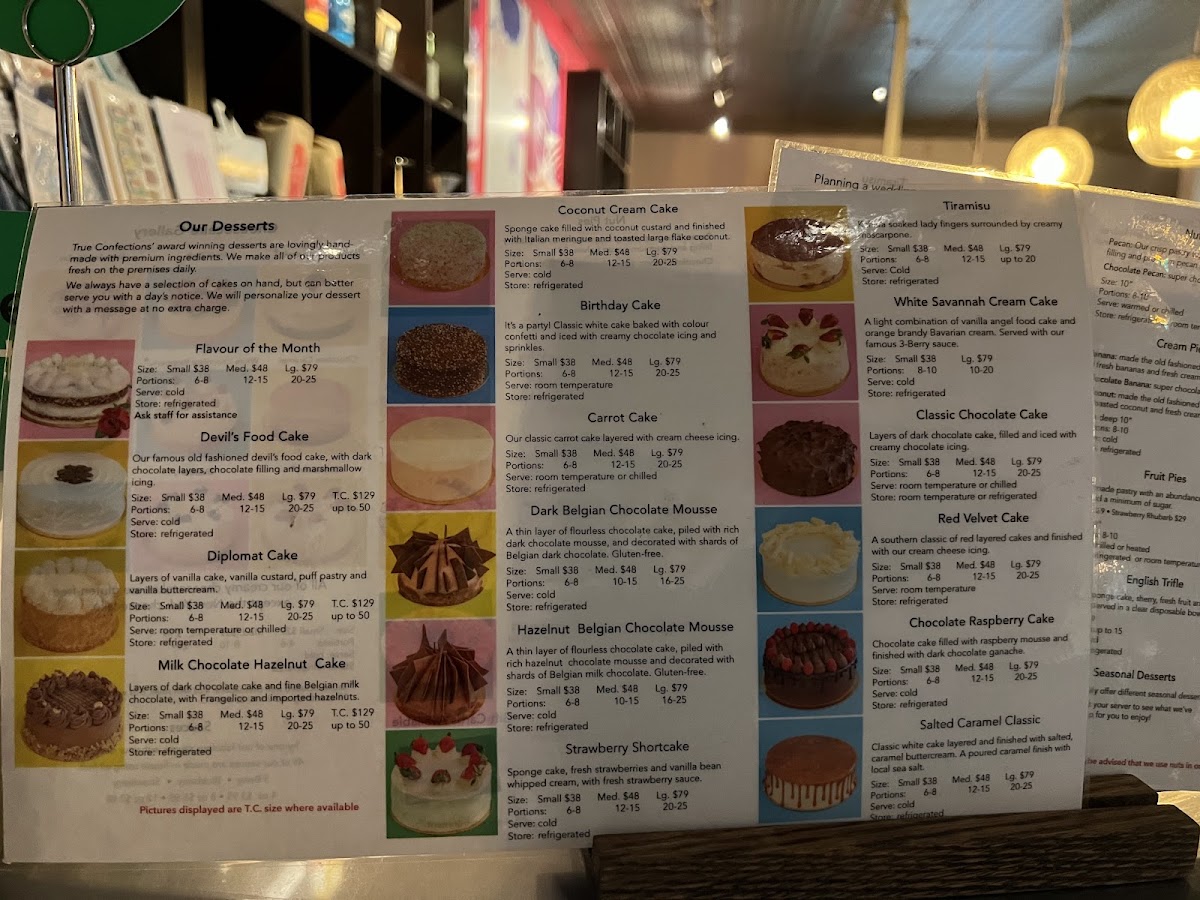 Our Desserts
True Confections' award winning desserts are lovingly hand-
made with premium ingredients. We make all of our products
fresh on the premises daily.
We always have a selection of cakes on hand, but can better
serve you with a day's notice. We will personalize your dessert
with a message at no extra charge.
Flavour of the Month
Size: Small $38 Med. $48 Lg. $79
Portions: 6-8 12-15 20-25
Serve: cold
Store: refrigerated
Ask staff for assistance
Devil's Food Cake
Our famous old fashioned devil's food cake, with dark
chocolate layers, chocolate filling and marshmallow
icing.
Size: Small $38 Med. $48 Lg. $79 T.C. $129
Portions: 6-8 12-15 20-25 up to 50
Serve: cold
Store: refrigerated
Diplomat Cake
Layers of vanilla cake, vanilla custard, puff pastry and
vanilla buttercream.
Size: Small $38 Med. $48 Lg. $79 T.C. $129
Portions: 6-8 12-15 20-25 up to 50
Serve: room temperature or chilled
Store: refrigerated
Milk Chocolate Hazelnut Cake
Layers of dark chocolate cake and fine Belgian milk
chocolate, with Frangelico and imported hazelnuts.
Size: Small $38 Med. $48 Lg. $79 T.C. $129
Portions: 6-8 12-15 20-25 up to 50
Serve: cold
Store: refrigerated
Pictures displayed are T.C. size where available
Coconut Cream Cake
Sponge cake filled with coconut custard and finished
with Italian meringue and toasted large flake coconut.
Size: Small $38 Med. $48 Lg. $79
Portions: 6-8 12-15 20-25
Serve: cold
Store: refrigerated
Birthday Cake
It's a party! Classic white cake baked with colour
confetti and iced with creamy chocolate icing and
sprinkles.
Size: Small $38 Med. $48 Lg. $79
Portions: 6-8 12-15 20-25
Serve: room temperature
Store: refrigerated
Carrot Cake
Our classic carrot cake layered with cream cheese icing.
Size: Small $38 Med. $48 Lg. $79
Portions: 6-8 12-15 20-25
Serve: room temperature or chilled
Store: refrigerated
Dark Belgian Chocolate Mousse
A thin layer of flourless chocolate cake, piled with rich
dark chocolate mousse, and decorated with shards of
Belgian dark chocolate. Gluten-free.
Size: Small $38 Med. $48 Lg. $79
Portions: 6-8 10-15 16-25
Serve: cold
Store: refrigerated
Hazelnut Belgian Chocolate Mousse
A thin layer of flourless chocolate cake, piled with
rich hazelnut chocolate mousse and decorated with
shards of Belgian milk chocolate. Gluten-free.
Size: Small $38 Med. $48 Lg. $79
Portions: 6-8 10-15 16-25
Serve: cold
Store: refrigerated
Strawberry Shortcake
Sponge cake, fresh strawberries and vanilla bean
whipped cream, with fresh strawberry sauce.
Size: Small $38 Med. $48 Lg. $79
Portions: 6-8 12-15 20-25
Serve: cold
Store: refrigerated
Tiramisu
soaked lady fingers surrounded by creamy
mascarpone.
Size: Small $38 Med. $48 Lg. $79
Portions: 6-8 12-15 up to 20
Serve: Cold
Store: refrigerated
White Savannah Cream Cake
A light combination of vanilla angel food cake and
orange brandy Bavarian cream. Served with our
famous 3-Berry sauce.
Size: Small $38 Lg. $79
Portions: 8-10 10-20
Serve: cold
Store: refrigerated
Classic Chocolate Cake
Layers of dark chocolate cake, filled and iced with
creamy chocolate icing.
Size: Small $38 Med. $48 Lg. $79
Portions: 6-8 12-15 20-25
Serve: room temperature or chilled
Store: room temperature or refrigerated
Red Velvet Cake
A southern classic of red layered cakes and finished
with our cream cheese icing.
Size: Small $38 Med. $48 Lg. $79
Portions: 6-8 12-15 20-25
Serve: room temperature
Store: refrigerated
Chocolate Raspberry Cake
Chocolate cake filled with raspberry mousse and
finished with dark chocolate ganache.
Size: Small $38 Med. $48 Lg. $79
Portions: 6-8 12-15 20-25
Serve: cold
Store: refrigerated
Salted Caramel Classic
Classic white cake layered and finished with salted,
caramel buttercream. A poured caramel finish with
local sea salt.
Size: Small $38 Med. $48 Lg. $79
Portions: 6-8 12-15 20-25
Serve: cold
Store: refrigerated
Planning a
Pecan: Our crisp pastry
filling and
Chocolate Pecan: super
Size: 10"
Portions: 6-10
Serve: warmed or chilled
Store:
Cream
made the old fashioned
fresh bananas and fresh cream
Banana: super
made the old fashioned
toasted coconut and fresh
deep 10"
8-10
cold
refrigerated
Fruit Pies
pastry with an
a minimum of sugar.
• Strawberry Rhubarb $29
8-10
chilled or heated
or room
English Trifle
cake, sherry, fresh fruit
served in a clear disposable
up to 15
Seasonal Desserts
offer different seasonal
your server to see what we've
for you to enjoy!
advised that we use nuts in